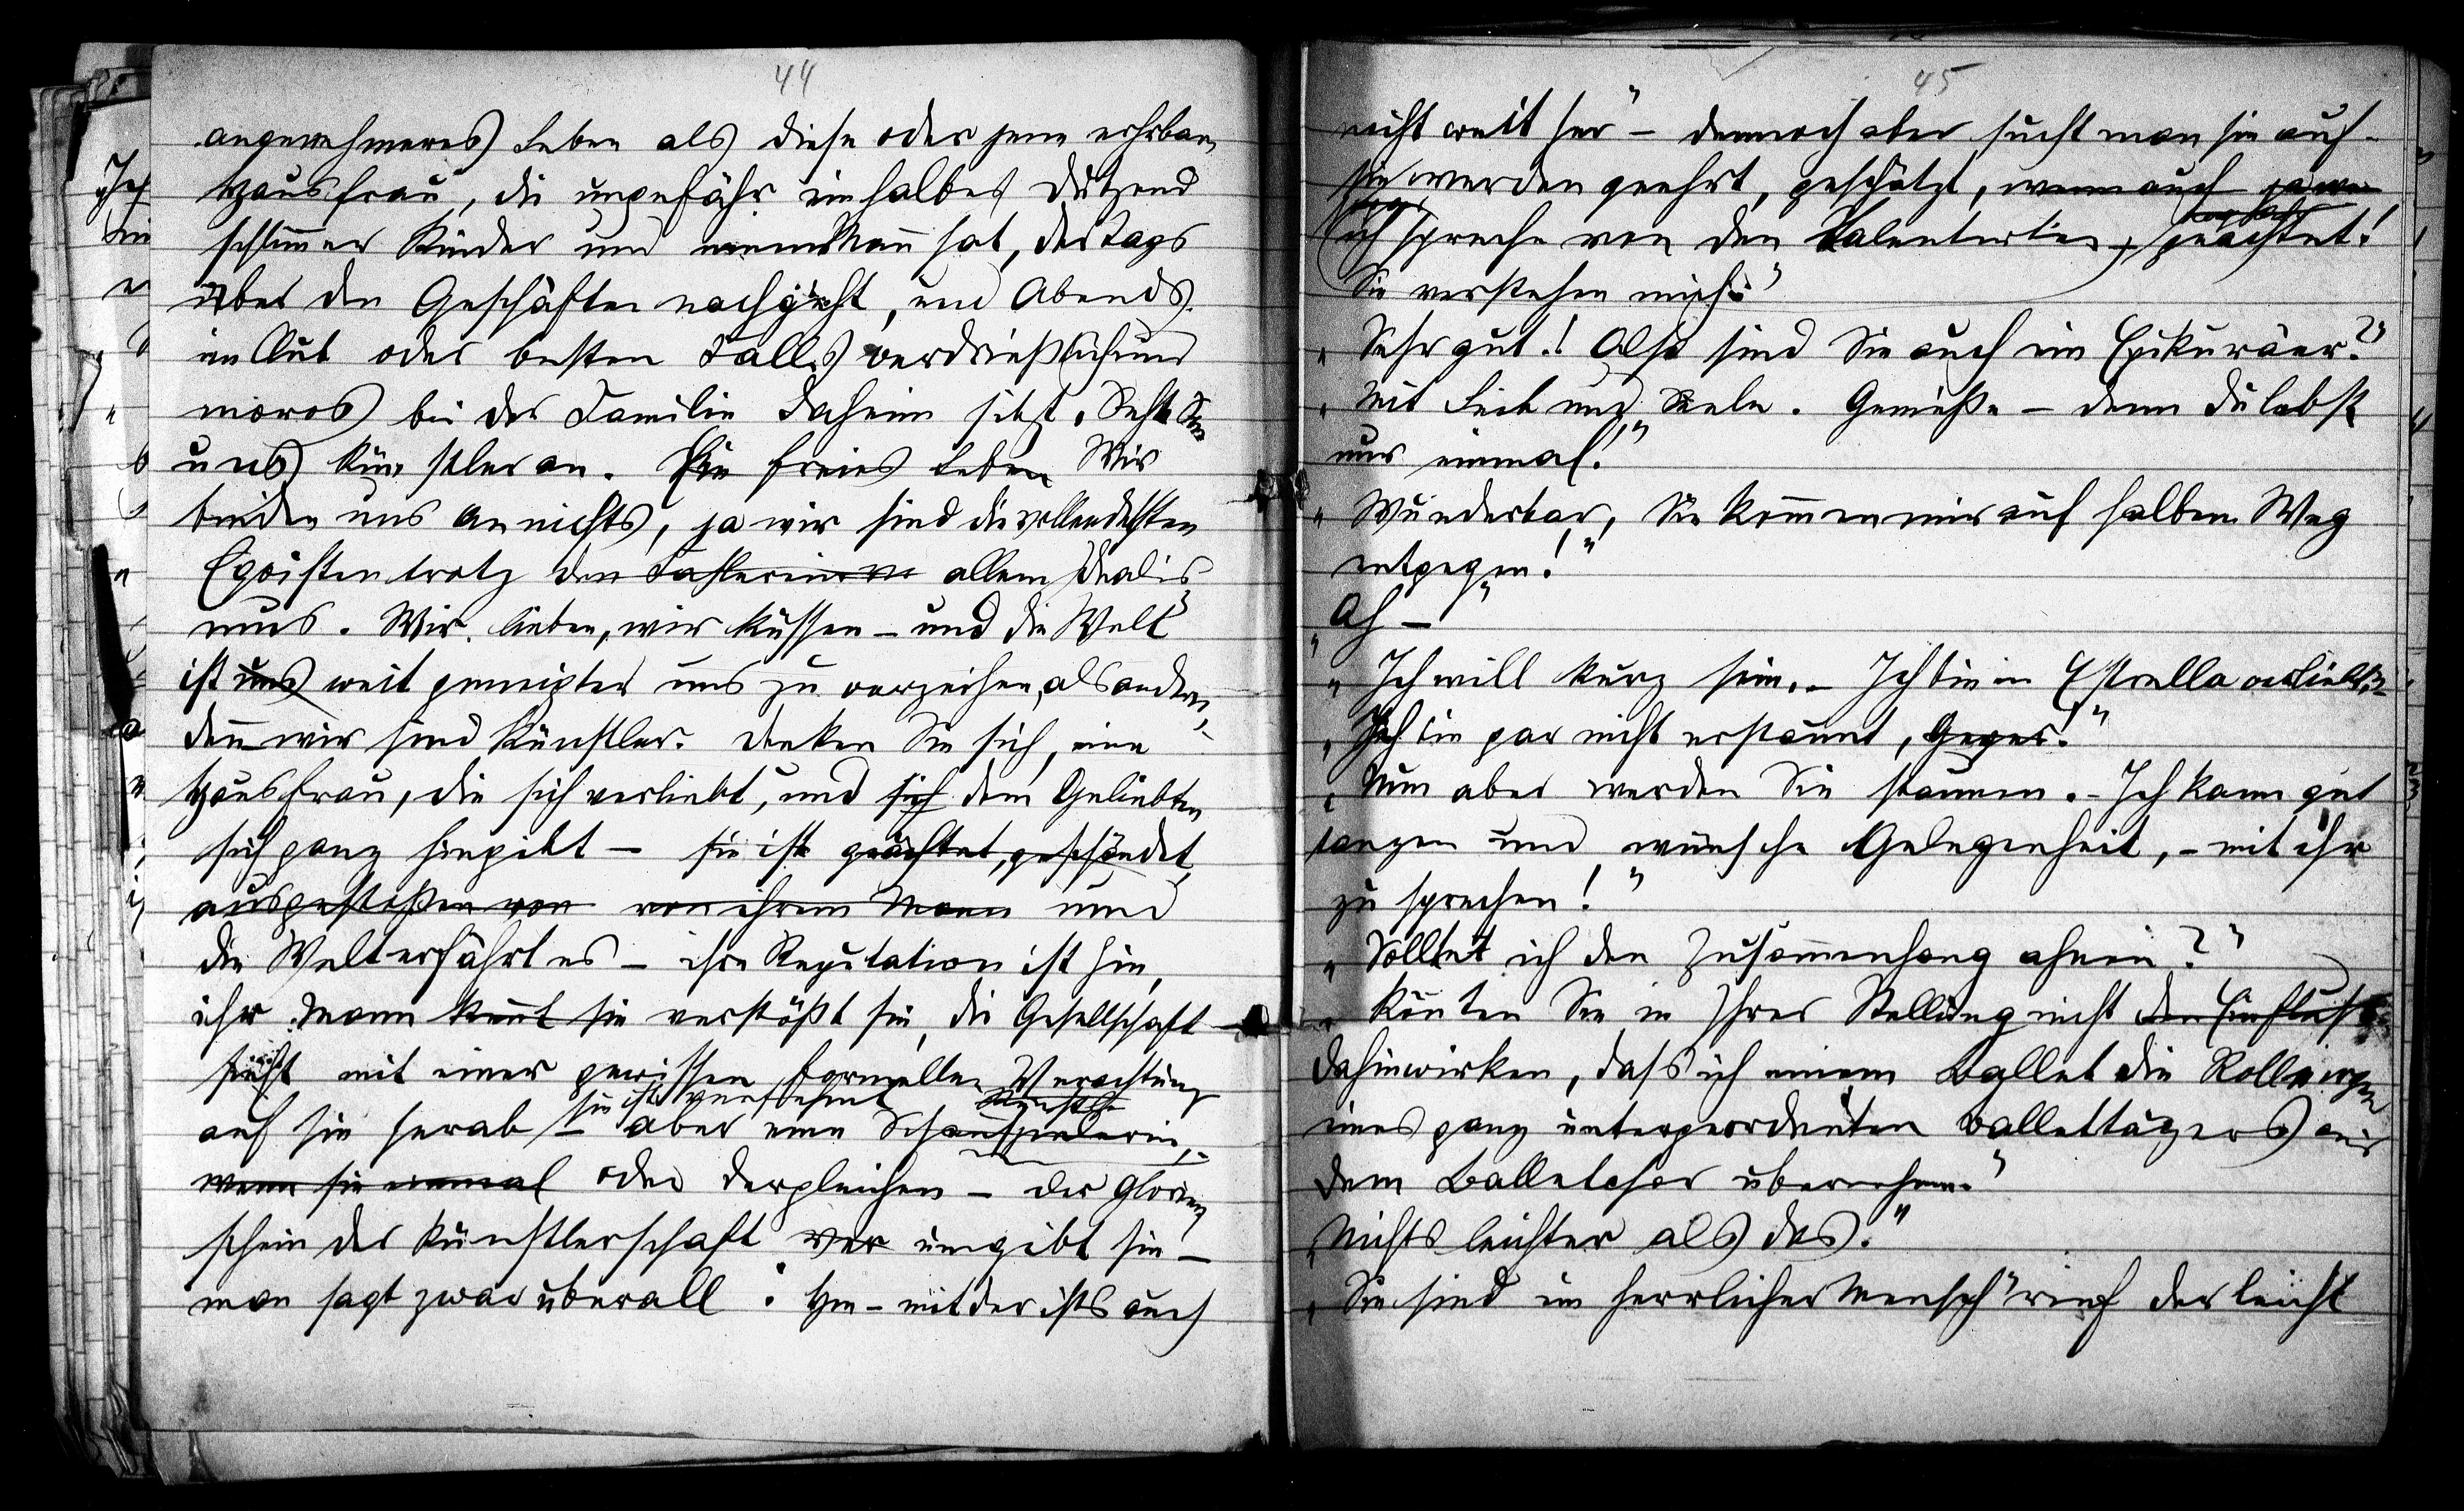 44
angenehmeres Leben als diese oder jene ehrbare
Hausfrau, die ungefähr ein halbes Dutzend
schlimmer Kinder und einen Mann hat, der Tags
über den Geschäften nachgeht, und Abends
im Club oder besten Falls verdrießlich und
moros bei der Familie daheim sitzt. Seht Sie
uns Künstler an. Ein freies Leben Wir
binden uns an nichts, ja wir sind die vollendetsten
Egoisten trotz allem Idealis
mus. Wir lieben, wir küssen – und die Welt
ist uns weit geneigter uns zu verzeihen, als andern,
denn wir sind Künstler. Denken Sie sich, eine
Hausfrau, die sich verliebt, und sich dem Geliebten
sich ganz hingibt – sie ist geächtet, geschändet,
ausgestoßen von von ihrem Mann und
die Welt erfährt es – ihre Reputation ist hin,
ihr Mann kennt sie verstößt sie, die Gesellschaft
sieht mit einer gewissen formellen Verachtung
sie ist verfehmt
auf sie herab – aber eine Schauspielerin,
wenn sie einmal oder dergleichen – der Glorien
schein der Künstlerschaft umgibt sie –
man sagt zwar überall: Hm – mit der ists auch
45
nicht weit her" – dennoch aber sucht man sie auf –
sie werden geehrt, geschätzt, wenn auch
ich spreche von den Talentirten, geachtet!
Sie verstehen mich"
"Sehr gut!! Also sind Sie auch ein Epikuräer?"
"Mit Leib und Seele. Genieße – denn du lebst
nur einmal!"
"Wunderbar, Sie kommen mir auf halbem Weg
entgegen!"
"Ah –"
"Ich will kurz sein. – Ich bin in Estrella verliebt."
"Ich bin gar nicht erstaunt,
"Nun aber werden Sie staunen. – Ich kann gut
tanzen und wünsche Gelegenheit, – mit ihr
zu sprechen!"
"Sollte ich den Zusammenhang ahnen?"
"Könnten Sie in Ihrer Stellung nicht den Einfluß
dahinwirken, daß ich einem Ballet die Rolle
eines ganz untergeordneten Ballettänzers aus
dem Balletchor übernehme."
"Nichts leichter als das."
"Sie sind ein herrlicher Mensch" rief der leicht